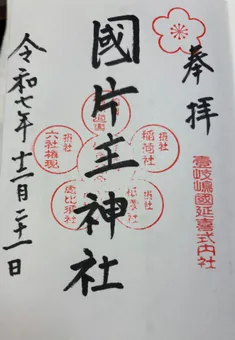 奉拝
壹岐嶋國延喜式内社
國片主神社
摂社
稲荷社
摂社
摂社
恵比須社
摂社
六社権現
令和七年十二月二十一日